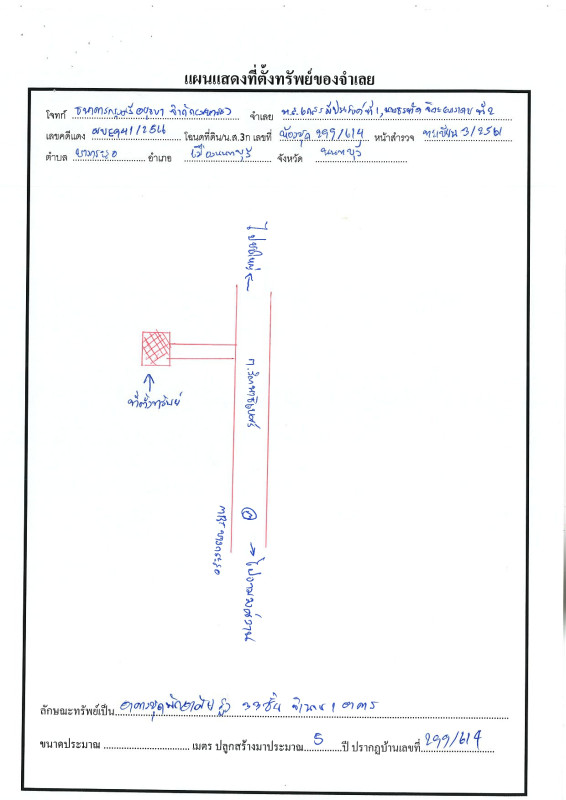 แผนแสดงที่ตั้งทรัพย์ของจำเลย
โจทก์ ธนาคารกรุงศรีอยุธยา จำกัด(มหาชน) จำเลย ที่ 1, ที่ 2
เลขคดีแดง โฉนดที่ดิน/น.ส.3ก เลขที่ ห้องชุด 299/614 หน้าสำรวจ ทะเบียน 3/2561
ตำบล บางกระสอ อำเภอ เมืองนนทบุรี จังหวัด นนทบุรี
ไป
ถ.รัตนาธิเบศร์
ที่ตั้งทรัพย์
MRT บางกระสอ
ไปงามวงศ์วาน
ลักษณะทรัพย์เป็น อาคารชุดพักอาศัย สูง 33 ชั้น จำนวน 1 อาคาร
ขนาดประมาณ เมตร ปลูกสร้างมาประมาณ 5 ปี ปรากฏบ้านเลขที่ 299/614